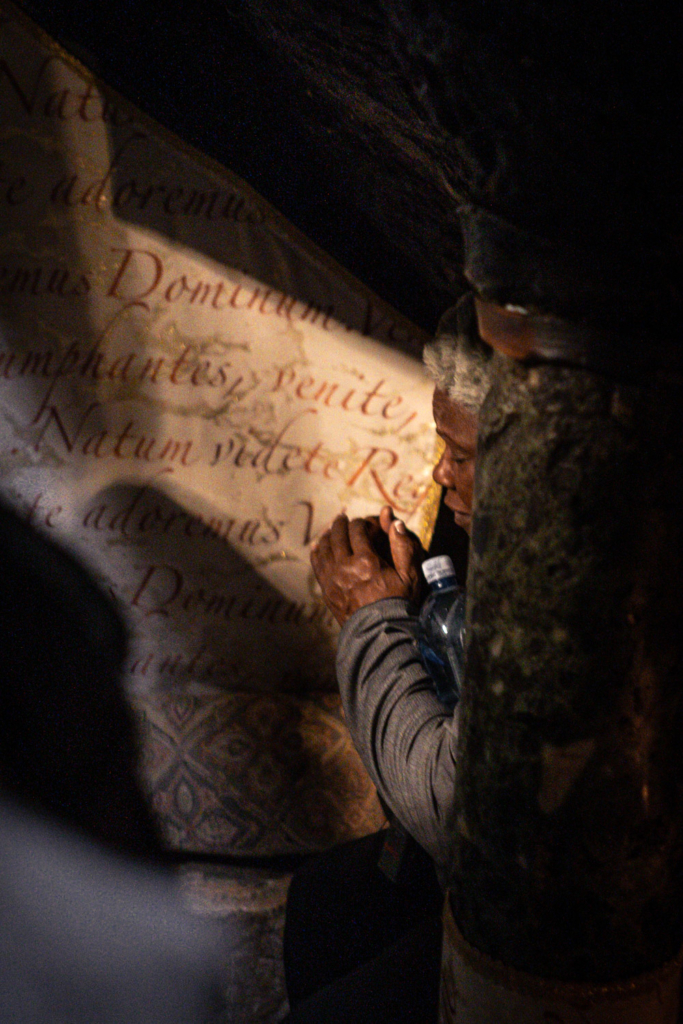 Natu
te adoremus
emus Dominum Ve
umphantes, venite,
Natum videte Reg
te adoremus V
s Dominum
antes,